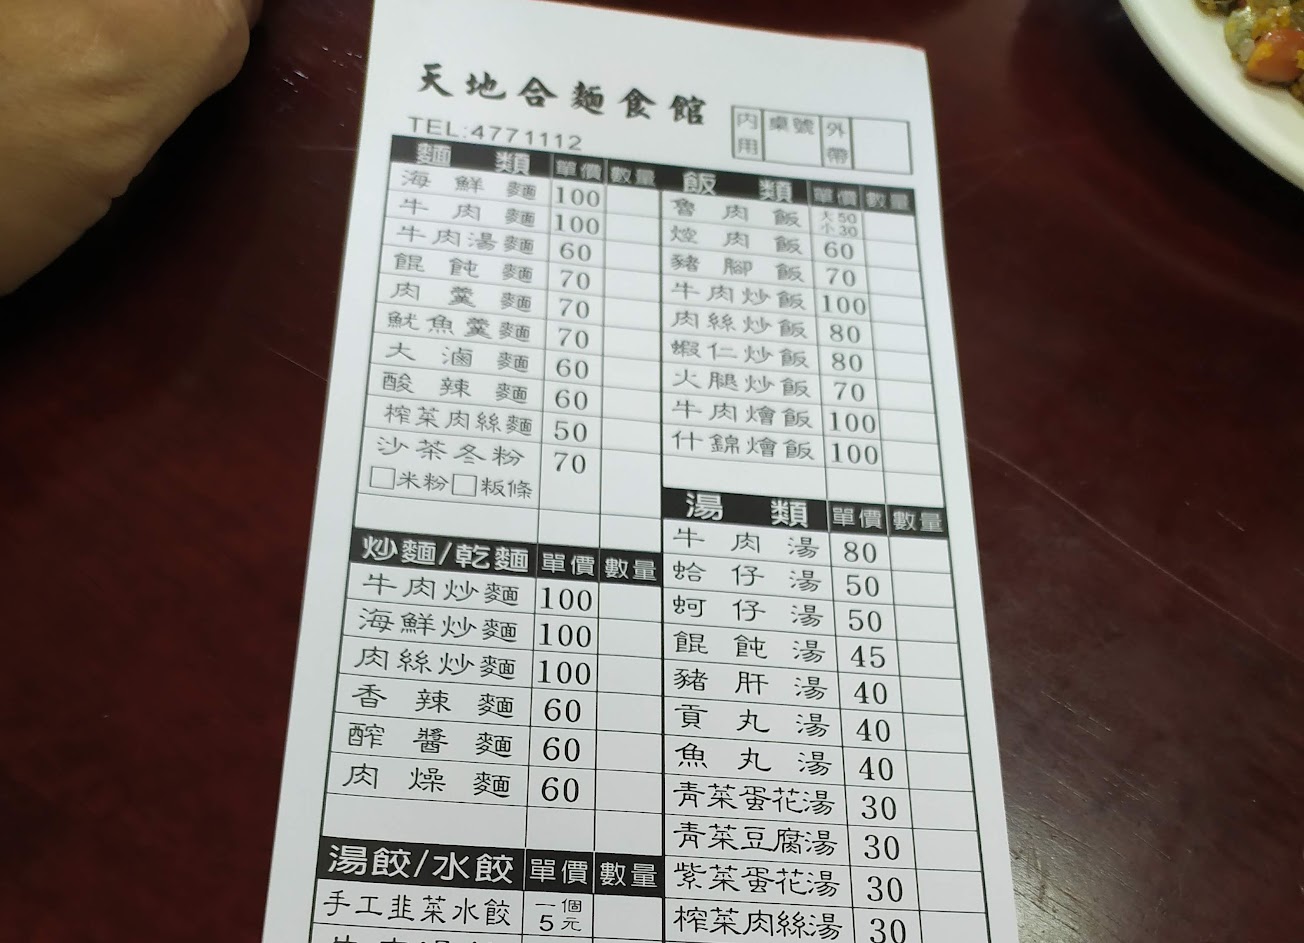 天地合麵食館
TEL:4771112
內用 桌號 外帶
麵類 單價 數量
海鮮麵 100
牛肉麵 100
牛肉湯麵 60
餛飩麵 70
肉羹麵 70
魷魚羹麵 70
大滷麵 60
酸辣麵 60
榨菜肉絲麵 50
沙茶冬粉 70
□米粉□粄條
炒麵/乾麵 單價 數量
牛肉炒麵 100
海鮮炒麵 100
肉絲炒麵 100
香辣麵 60
醡醬麵 60
肉燥麵 60
湯餃/水餃 單價 數量
手工韭菜水餃 一個5元
飯類 單價 數量
魯肉飯 大50 小30
焢肉飯 60
豬腳飯 70
牛肉炒飯 100
肉絲炒飯 80
蝦仁炒飯 80
火腿炒飯 70
牛肉燴飯 100
什錦燴飯 100
湯類 單價 數量
牛肉湯 80
蛤仔湯 50
蚵仔湯 50
餛飩湯 45
豬肝湯 40
貢丸湯 40
魚丸湯 40
青菜蛋花湯 30
青菜豆腐湯 30
紫菜蛋花湯 30
榨菜肉絲湯 30